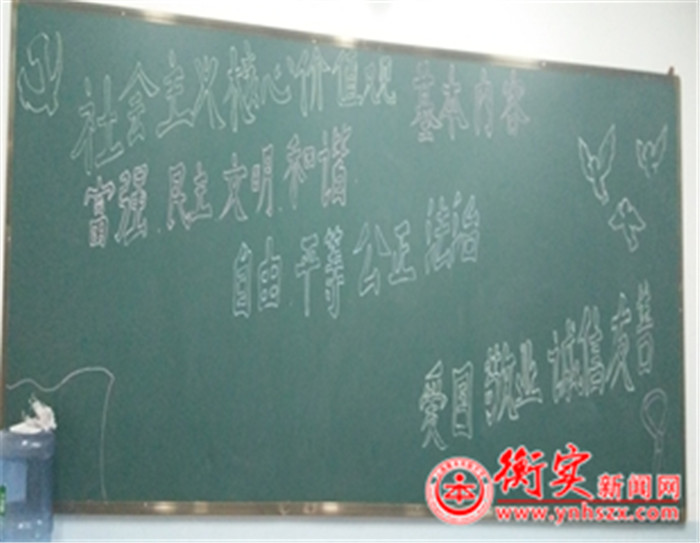 社会主义核心价值观 基本内容
富强 民主 文明 和谐
自由 平等 公正 法治
爱国 敬业 诚信 友善
衡实新闻网
www.ynhszx.com